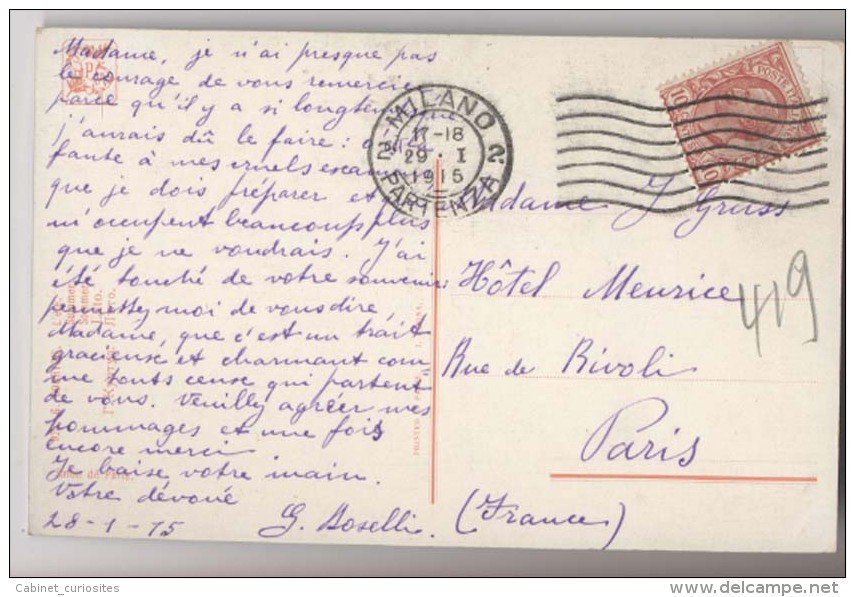 Madame, je n'ai presque pas
le courage de vous remercier
parce qu'il y a si longtemps que
j'aurais dû le faire:
faute à mes cruels
que je dois préparer et
m'occupent beaucoup plus
que je ne voudrais. J'ai
été touché de votre souvenir:
permettez moi de vous dire,
Madame, que c'est un trait
gracieuse et charmant com
me touts ceuse qui partent
de vous. Veuilly agréer mes
hommages et une fois
encore merci
Je baise votre main.
Votre dévoué
28-1-15 G. Boselli
MILANO 2
17-18
29 . I
1915
PARTENZA
POSTE ITALIANE
Madame J Gruss
Hôtel Meurice
Rue de Rivoli
Paris
(France)
419
Salon de Paris.
Cabinet_curiosites
www.delcampe.net